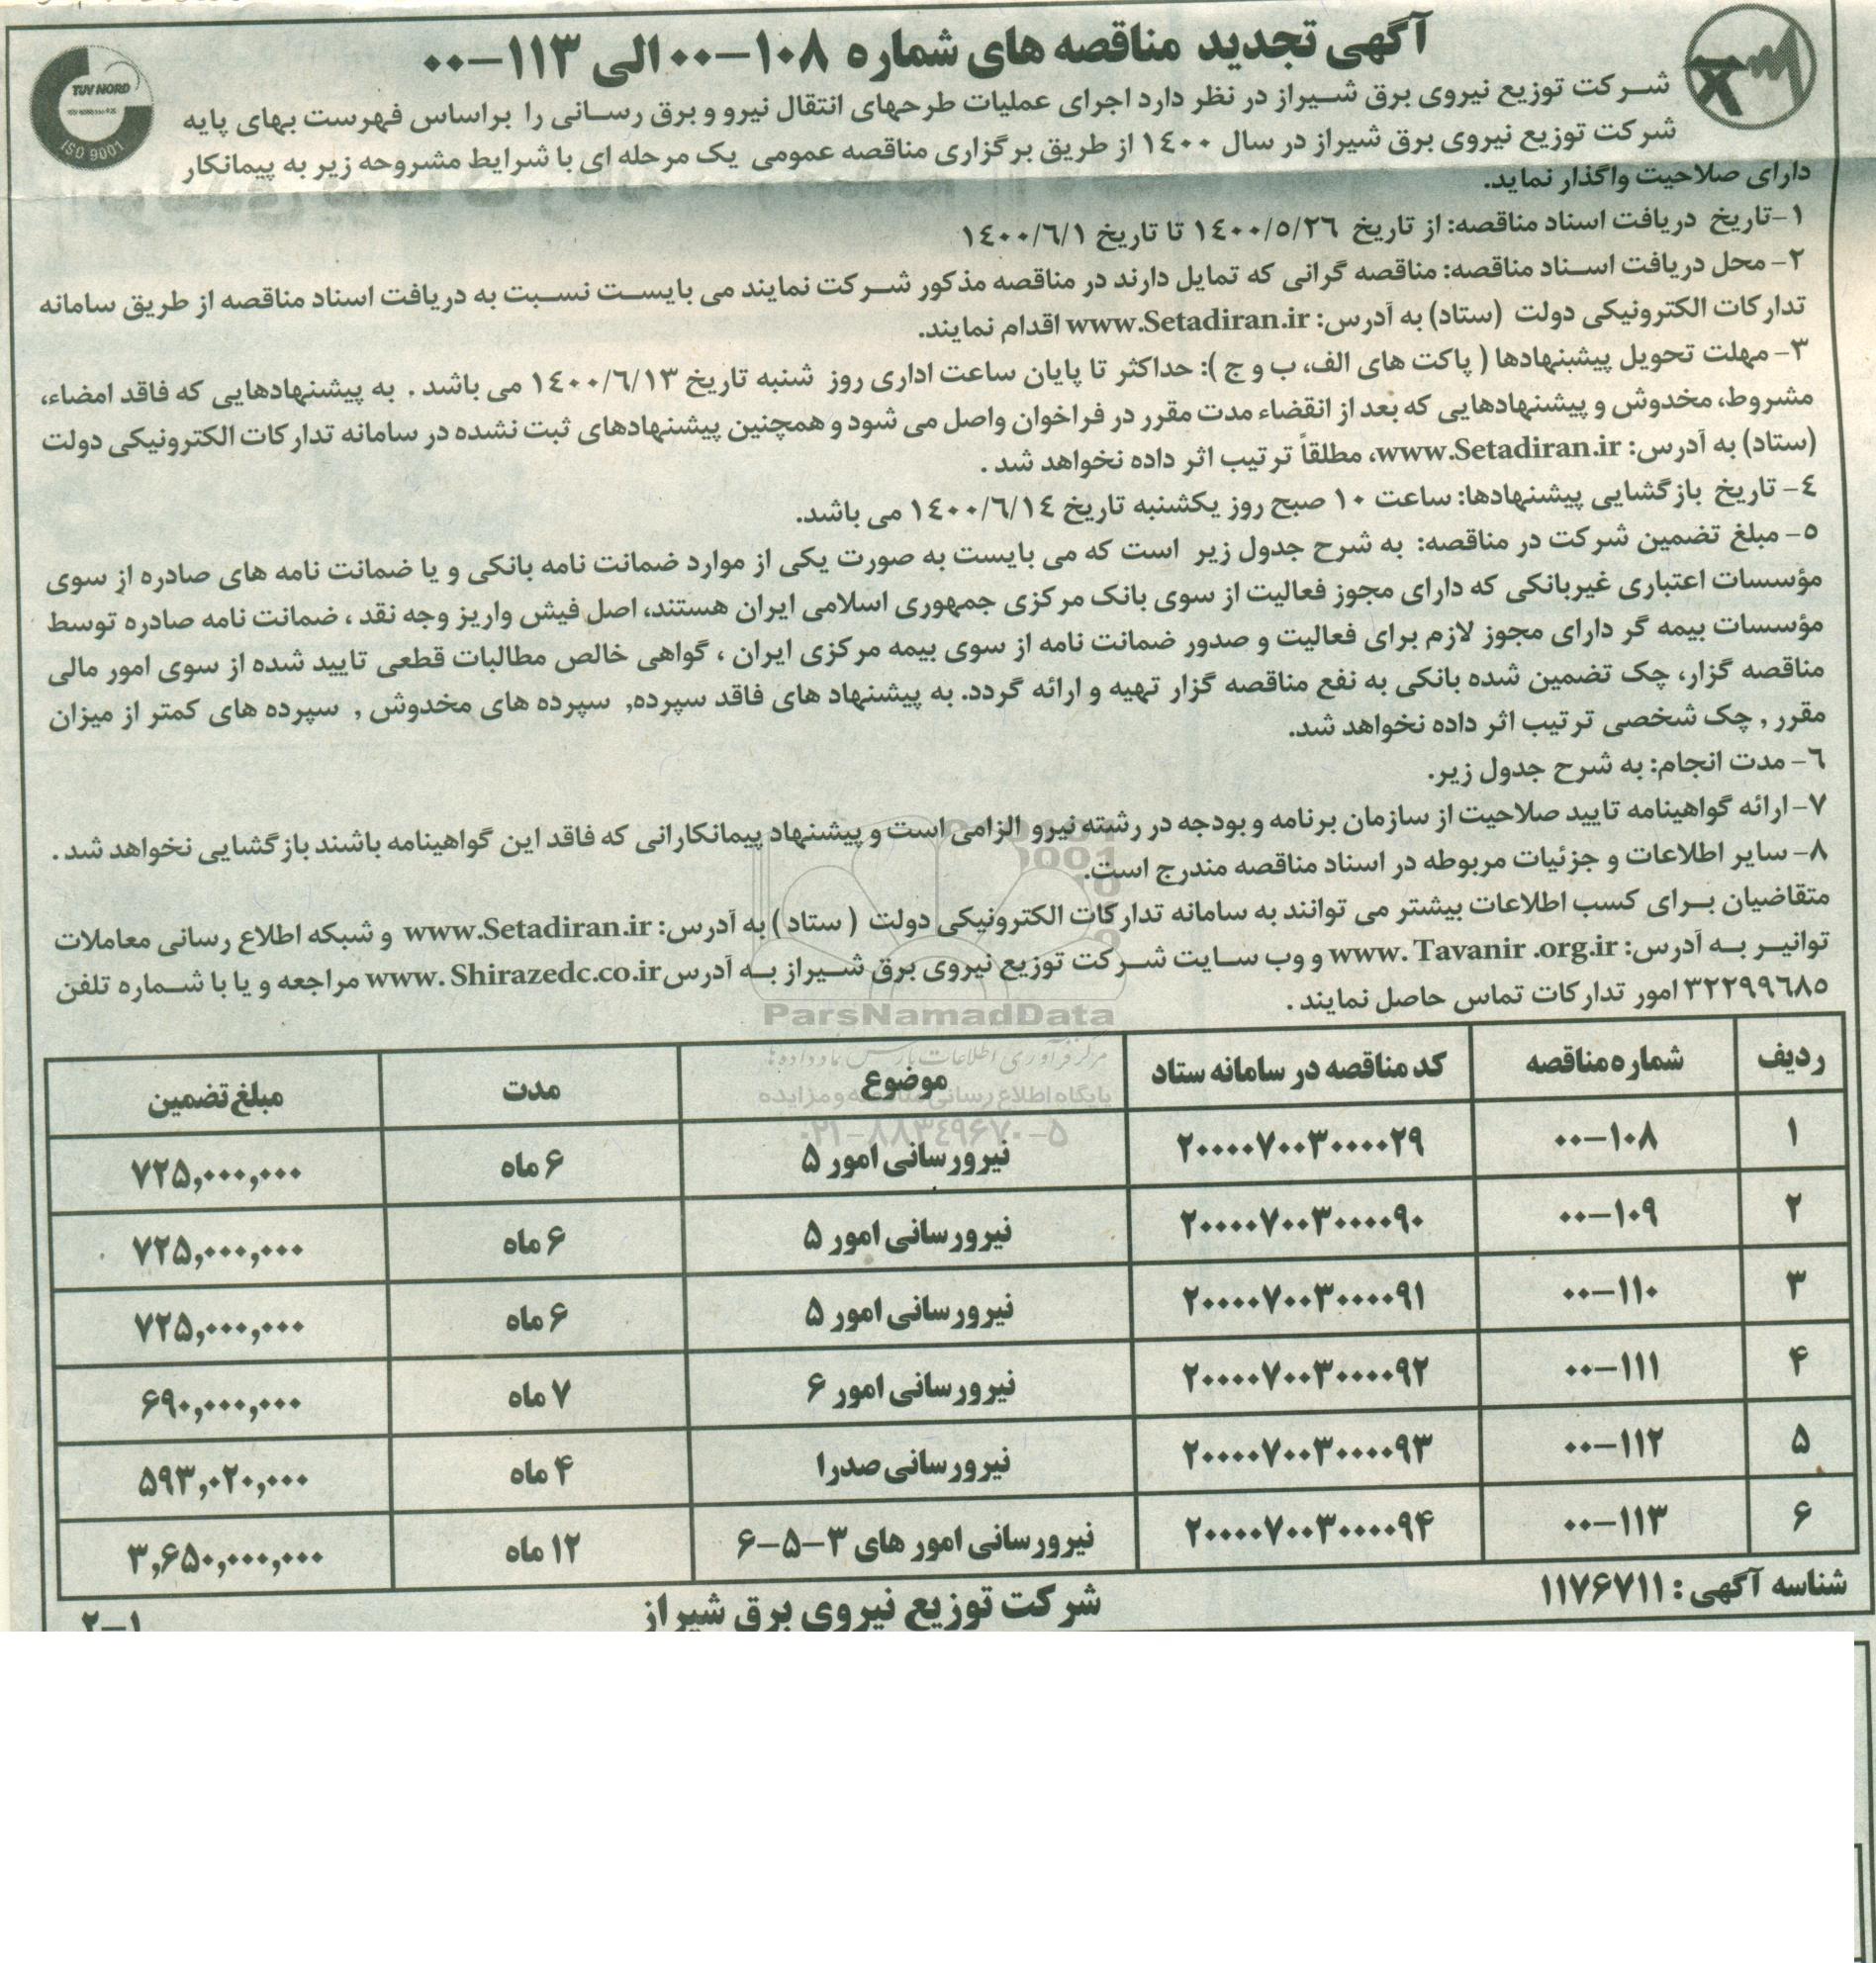 آگهی تجدید مناقصه های شماره ۱۰۸-۰۰ الی ۱۱۳-۰۰
TUV NORD
ISO 9001
شرکت توزیع نیروی برق شیراز در نظر دارد اجرای عملیات طرحهای انتقال نیرو و برق رسانی را براساس فهرست بهای پایه
شرکت توزیع نیروی برق شیراز در سال ۱۴۰۰ از طریق برگزاری مناقصه عمومی یک مرحله ای با شرایط مشروحه زیر به پیمانکار
دارای صلاحیت واگذار نماید.
۱-تاریخ دریافت اسناد مناقصه: از تاریخ ۱۴۰۰/۵/۲۶ تا تاریخ ۱۴۰۰/۶/۱
۲- محل دریافت اسناد مناقصه: مناقصه گرانی که تمایل دارند در مناقصه مذکور شرکت نمایند می بایست نسبت به دریافت اسناد مناقصه از طریق سامانه
تدارکات الکترونیکی دولت (ستاد) به آدرس: www.Setadiran.ir اقدام نمایند.
۳- مهلت تحویل پیشبنهادها ( پاکت های الف، ب و ج ): حداکثر تا پایان ساعت اداری روز شنبه تاریخ ۱۴۰۰/۶/۱۳ می باشد . به پیشنهادهایی که فاقد امضاء،
مشروط، مخدوش و پیشنهادهایی که بعد از انقضاء مدت مقرر در فراخوان واصل می شود و همچنین پیشنهادهای ثبت نشده در سامانه تدارکات الکترونیکی دولت
(ستاد) به آدرس: www.Setadiran.ir، مطلقاً ترتیب اثر داده نخواهد شد .
۴- تاریخ بازگشایی پیشنهادها: ساعت ۱۰ صبح روز یکشنبه تاریخ ۱۴۰۰/۶/۱۴ می باشد.
۵- مبلغ تضمین شرکت در مناقصه: به شرح جدول زیر است که می بایست به صورت یکی از موارد ضمانت نامه بانکی و یا ضمانت نامه های صادره از سوی
مؤسسات اعتباری غیربانکی که دارای مجوز فعالیت از سوی بانک مرکزی جمهوری اسلامی ایران هستند، اصل فیش واریز وجه نقد ، ضمانت نامه صادره توسط
مؤسسات بیمه گر دارای مجوز لازم برای فعالیت و صدور ضمانت نامه از سوی بیمه مرکزی ایران ، گواهی خالص مطالبات قطعی تایید شده از سوی امور مالی
مناقصه گزار، چک تضمین شده بانکی به نفع مناقصه گزار تهیه و ارائه گردد. به پیشنهاد های فاقد سپرده, سپرده های مخدوش , سپرده های کمتر از میزان
مقرر , چک شخصی ترتیب اثر داده نخواهد شد.
۶- مدت انجام: به شرح جدول زیر.
۷-ارائه گواهینامه تایید صلاحیت از سازمان برنامه و بودجه در رشته نیرو الزامی است و پیشنهاد پیمانکارانی که فاقد این گواهینامه باشند بازگشایی نخواهد شد .
۸- سایر اطلاعات و جزئیات مربوطه در اسناد مناقصه مندرج است.
متقاضیان برای کسب اطلاعات بیشتر می توانند به سامانه تدارکات الکترونیکی دولت ( ستاد ) به آدرس: www.Setadiran.ir و شبکه اطلاع رسانی معاملات
توانیر به آدرس: www. Tavanir .org.ir و وب سایت شرکت توزیع نیروی برق شیراز به آدرس www. Shirazedc.co.ir مراجعه و یا با شماره تلفن
۳۲۲۹۹۶۸۵ امور تدارکات تماس حاصل نمایند .
ParsNamadData
مرکز فرآوری اطلاعات پارس نماد داده ها
پایگاه اطلاع رسانی مناقصه و مزایده
۰۲۱-۸۸۳۴۹۶۷۰-۵
ردیف شماره مناقصه کد مناقصه در سامانه ستاد موضوع مدت مبلغ تضمین
۱ ۱۰۸-۰۰ ۲۰۰۰۰۷۰۰۳۰۰۰۰۲۹ نیرورسانی امور ۵ ۶ ماه ۷۲۵,۰۰۰,۰۰۰
۲ ۱۰۹-۰۰ ۲۰۰۰۰۷۰۰۳۰۰۰۰۹۰ نیرورسانی امور ۵ ۶ ماه ۷۲۵,۰۰۰,۰۰۰
۳ ۱۱۰-۰۰ ۲۰۰۰۰۷۰۰۳۰۰۰۰۹۱ نیرورسانی امور ۵ ۶ ماه ۷۲۵,۰۰۰,۰۰۰
۴ ۱۱۱-۰۰ ۲۰۰۰۰۷۰۰۳۰۰۰۰۹۲ نیرورسانی امور ۶ ۷ ماه ۶۹۰,۰۰۰,۰۰۰
۵ ۱۱۲-۰۰ ۲۰۰۰۰۷۰۰۳۰۰۰۰۹۳ نیرورسانی صدرا ۴ ماه ۵۹۳,۰۲۰,۰۰۰
۶ ۱۱۳-۰۰ ۲۰۰۰۰۷۰۰۳۰۰۰۰۹۴ نیرورسانی امور های ۳-۵-۶ ۱۲ ماه ۳,۶۵۰,۰۰۰,۰۰۰
شناسه آگهی : ۱۱۷۶۷۱۱
شرکت توزیع نیروی برق شیراز
۲-۱